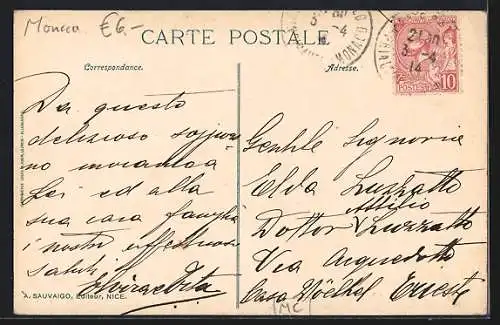 Monaco €6.-
CARTE POSTALE
Correspondance.
Adresse.
3 -4
MONACO
21
3 -4
14
POSTES
10
Da questo
delizioso soggior
no inviamo a
Lei ed alla
sua cara famiglia
i nostri affettuosi
saluti
Elvira e Vita
A. SAUVAIGO, Editeur, NICE.
Gentile Signora
Elda Luzzatto
Attilio
Dottor Luzzatto
Via Acquedotto
Casa Völkel Trieste
MC